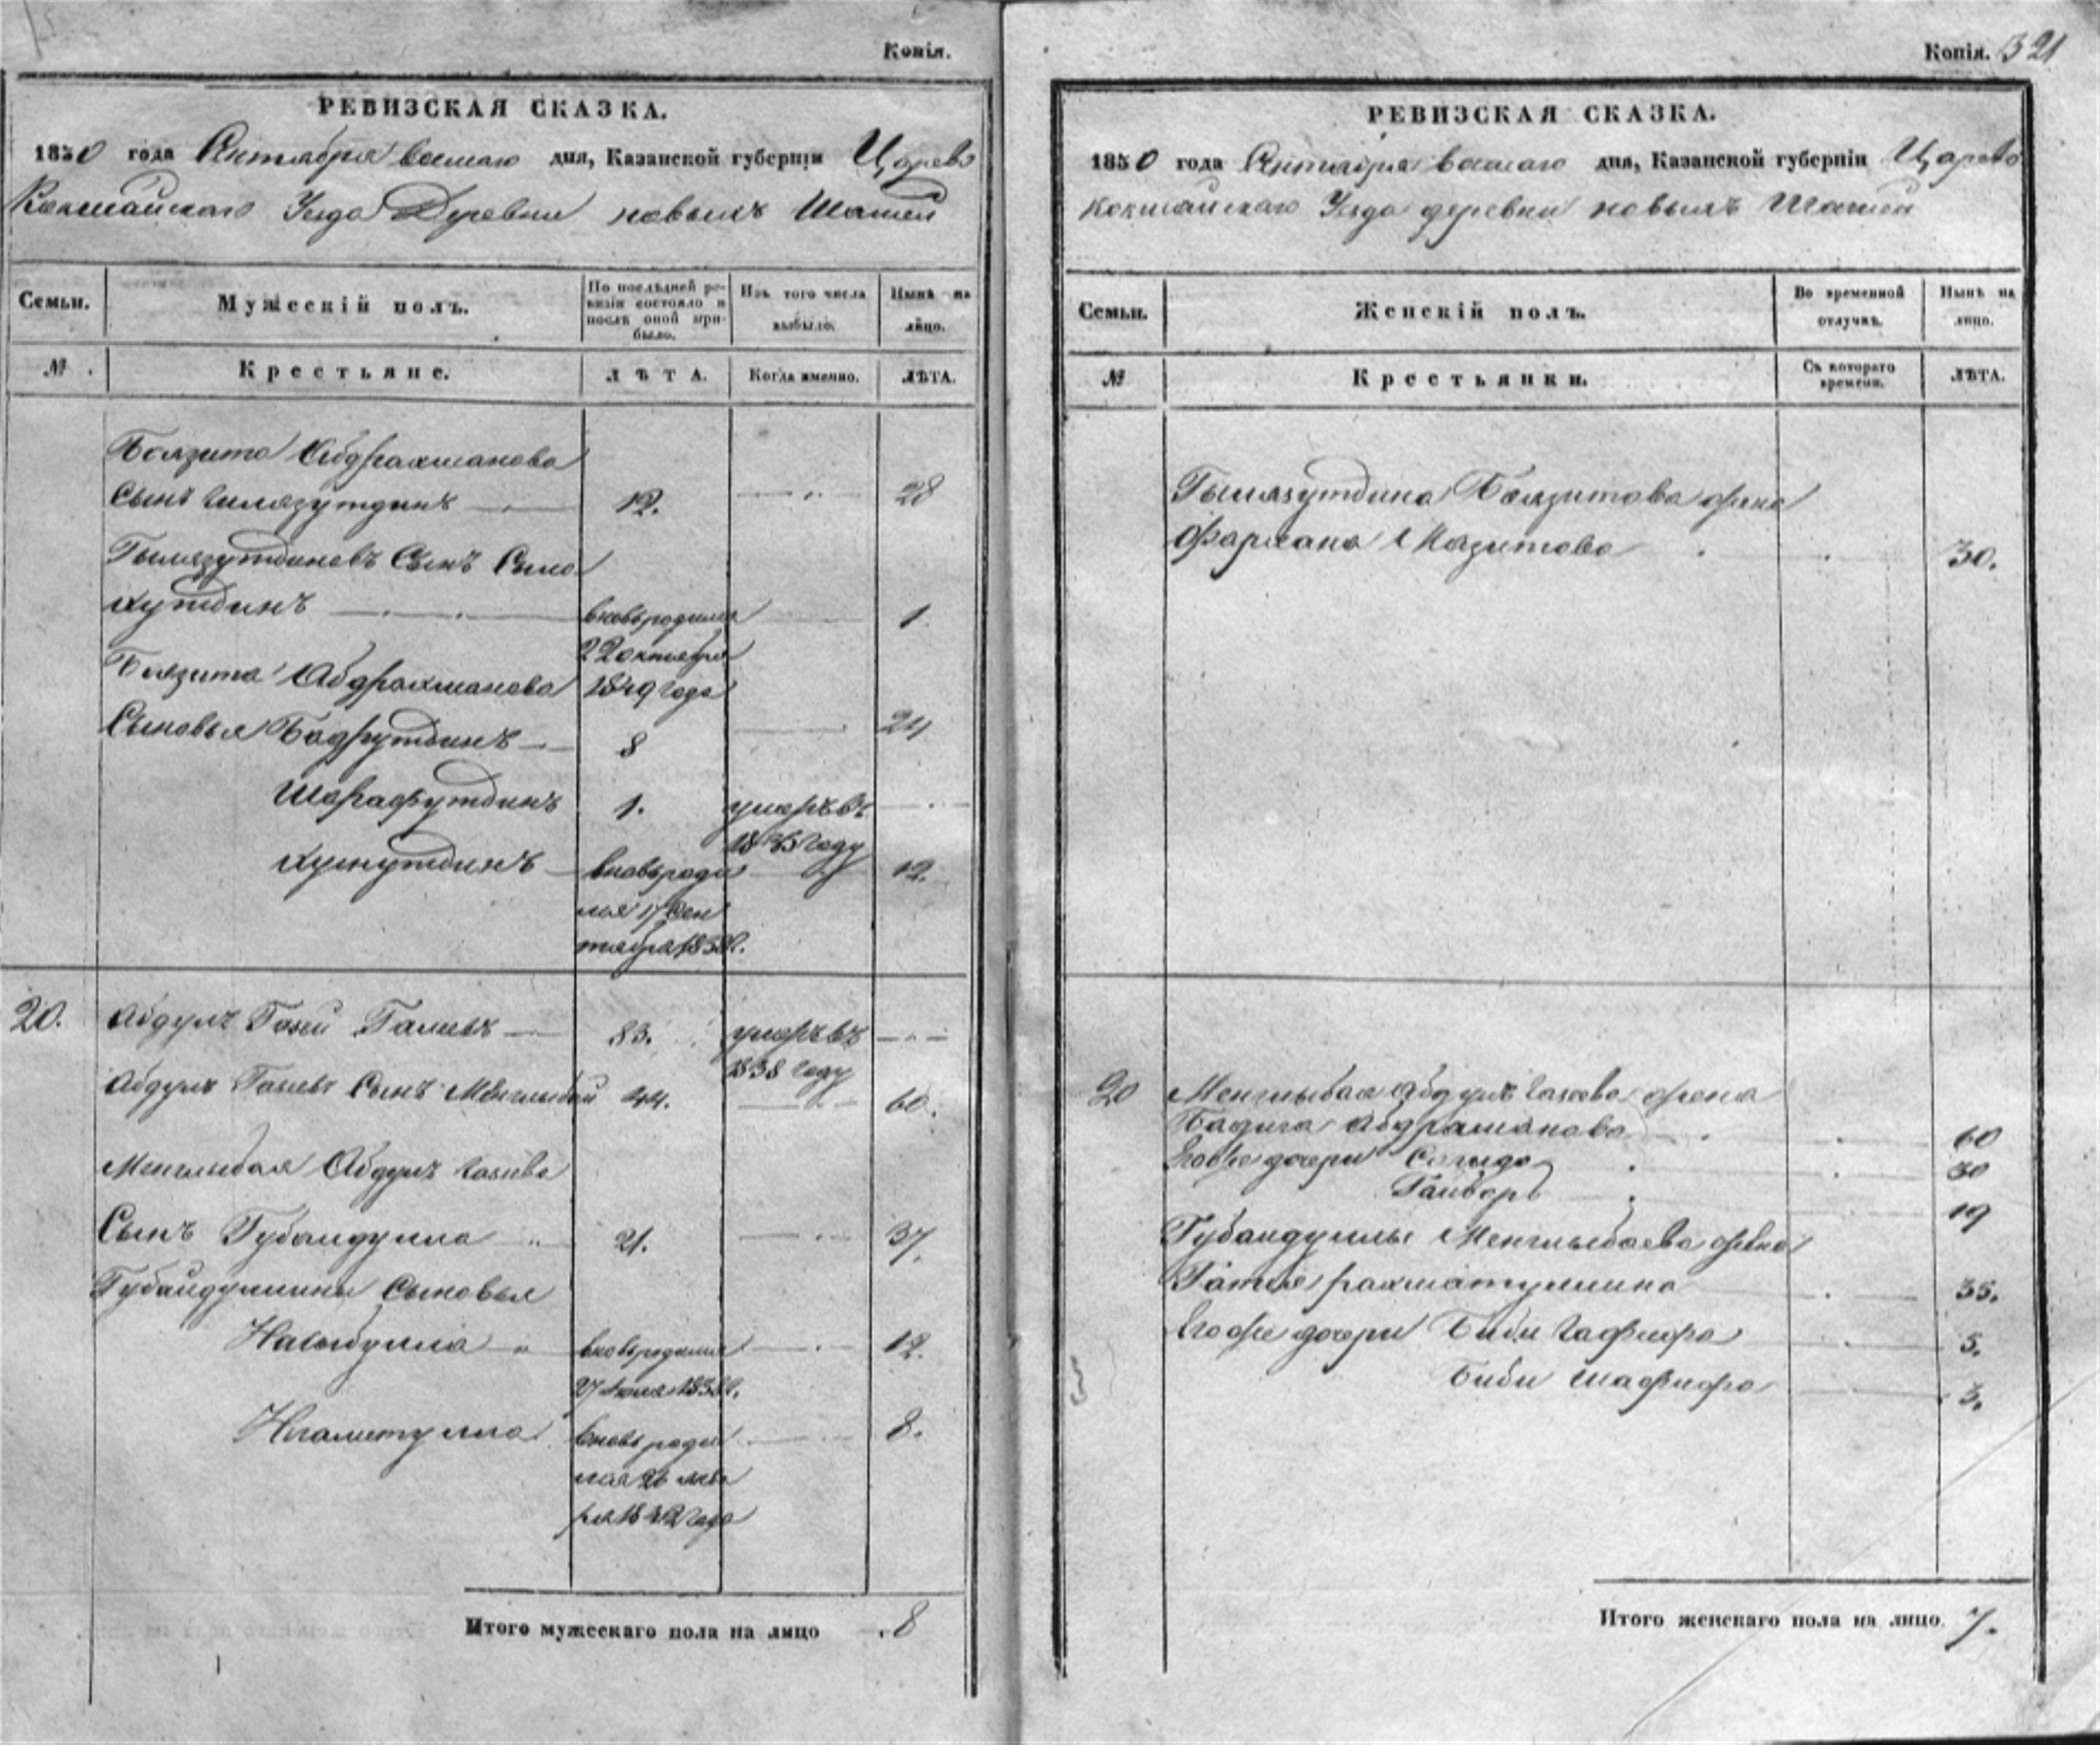 Копія.
РЕВИЗСКАЯ СКАЗКА.
1850 года Октября дня, Казанской губерніи Царево
Кокшайскаго Уезда Деревни новыхъ Шашей
Семьи.
Мужескій полъ.
По послѣдней ре-
визіи состояло и
послѣ оной при-
было.
Изъ того числа
выбыло.
Нынѣ на
лицо.
№
Крестьяне.
ЛѢТА.
Когда именно.
ЛѢТА.
Боязита Абдрахманова
Сынъ Гилязутдинъ 12. 28
Гилязутдиновъ Сынъ
хутдинъ вновь родился 1
22 октября
Боязита Абдрахманова 1849 года
Сыновья Бадрутдинъ 8 24
Шарафутдинъ 1. умеръ въ
году
вновь роди 12.
лся 17 Сен
тября 1838 г.
20. Абдулъ Галеевъ 83. умеръ въ
1838 году
Абдулъ Сынъ Менглыбай 44. 60.
Менглыбая Абдулъ
Сынъ Губайдулла 21. 37.
Губайдуллины Сыновья
вновь родился 12.
27 1838 г.
вновь роди 8.
лся 26 янва
ря 1842 года
Итого мужескаго пола на лицо 8
Копія. 321
РЕВИЗСКАЯ СКАЗКА.
1850 года Октября дня, Казанской губерніи Царево
кокшайскаго Уезда деревни новыхъ Шашей
Семьи.
Женскій полъ.
Во временной
отлучкѣ.
Нынѣ на
лицо.
№
Крестьянки.
Съ котораго
времени.
ЛѢТА.
Гилязутдина Боязитова жена
Фархана Мазитова 30.
20 Менглыбая Абдулъ жена
Бадига Абдрашанова 60
Его же дочери Сагида 30
19
Губайдуллы Менглыбаева жена
Рахматуллина 35.
Его же дочери Биби 5.
Биби 3.
Итого женскаго пола на лицо 7.